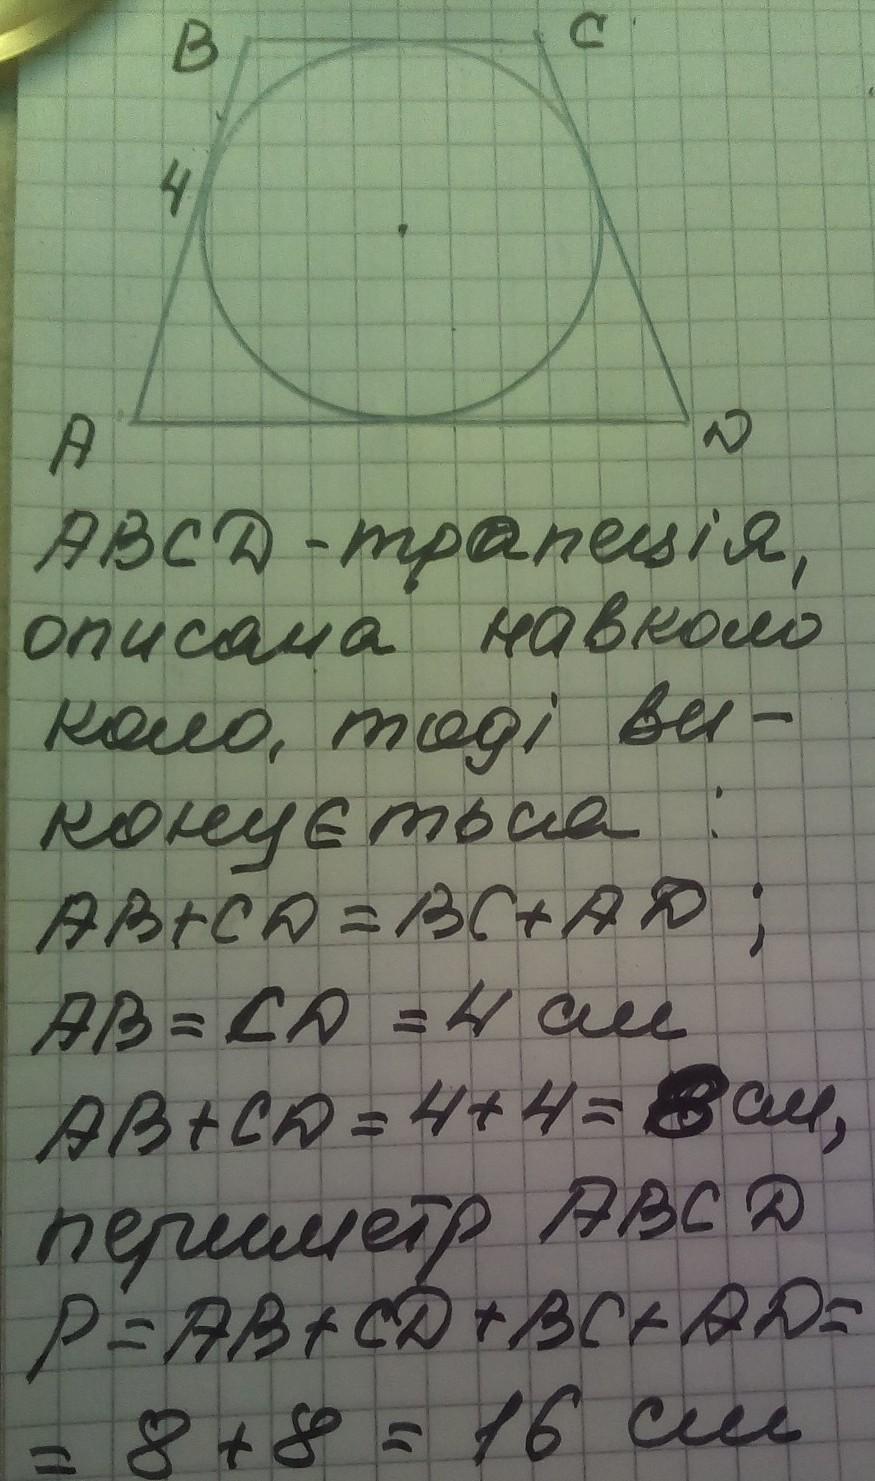 B C
4
A D
ABCD - трапеція,
описана навколо
коло, тоді ви-
конується :
AB+CD=BC+AD ;
AB=CD =4 см
AB+CD=4+4=8 см,
периметр ABCD
P=AB+CD+BC+AD=
= 8+8=16 см